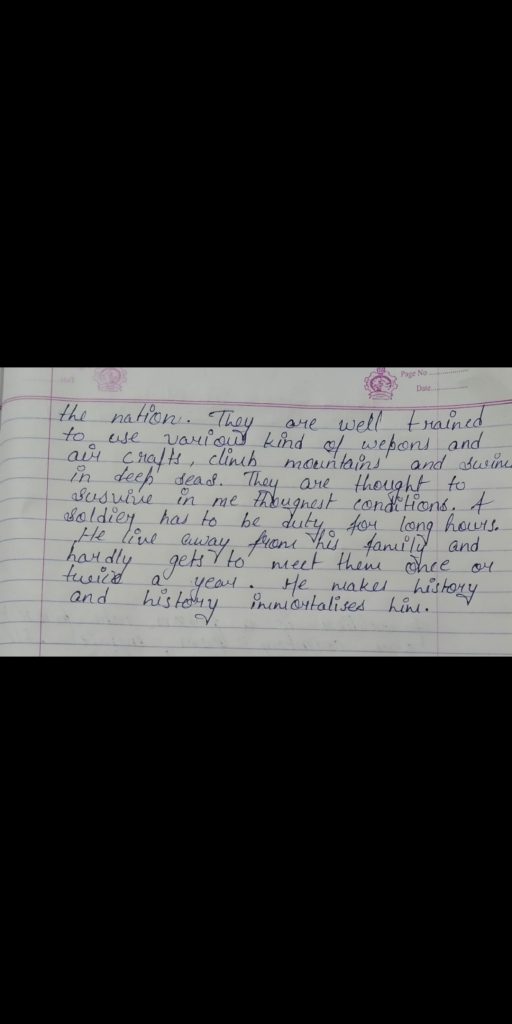 Page No
Date
the nation. They are well trained
to use various kind of wepons and
air crafts, climb mountains and swim
in deep seas. They are thought to
susvive in me thougnest conditions. A
soldier has to be duty for long hours.
He live away from his family and
hardly gets to meet them once or
twice a year. He makes history
and history immortalises him.